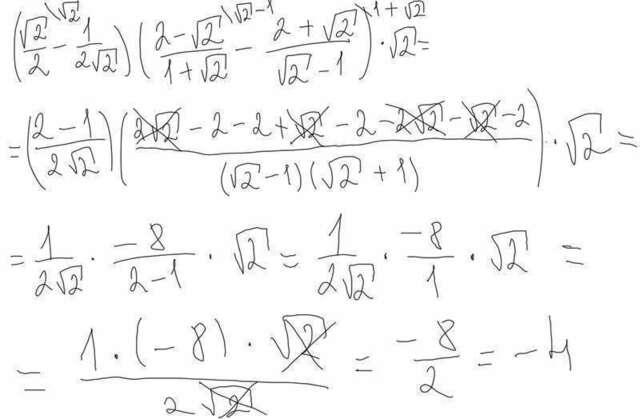 (√2/2 \√2 - 1/(2√2)) ((2-√2)/(1+√2) \√2-1 - (2+√2)/(√2-1) \1+√2) · √2 =
= ((2-1)/(2√2)) ((2√2 - 2 - 2 + √2 - 2 - 2√2 - √2 - 2)/((√2-1)(√2+1))) · √2 =
= 1/(2√2) · (-8)/(2-1) · √2 = 1/(2√2) · (-8)/1 · √2 =
= (1·(-8)·√2)/(2√2) = (-8)/2 = -4